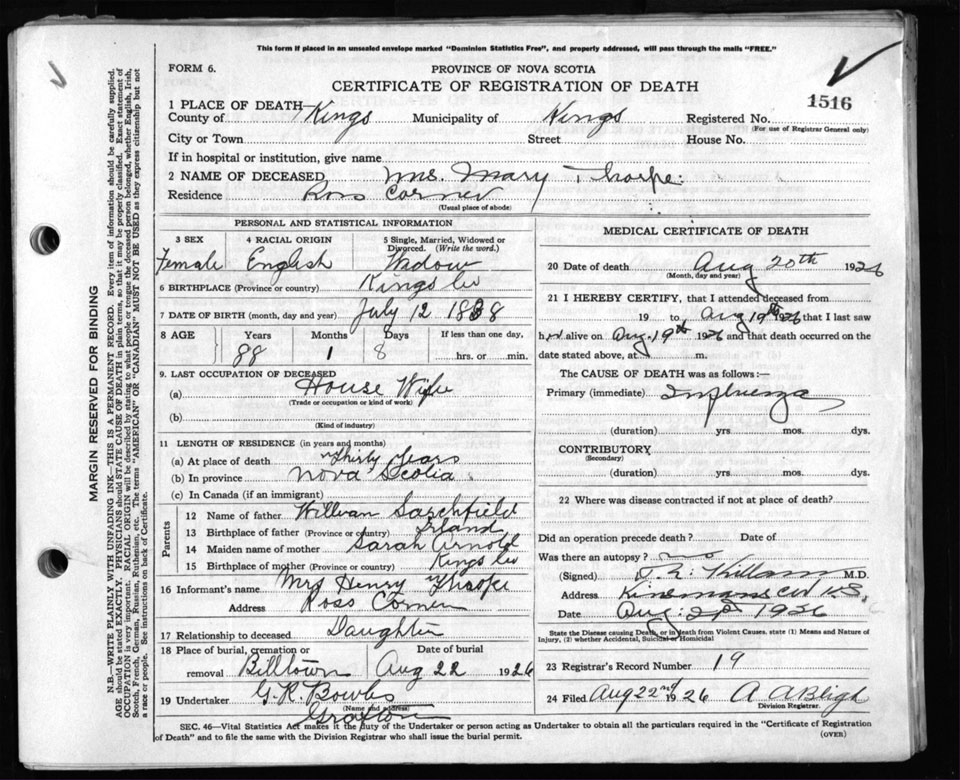 This form if placed in an unsealed envelope marked "Dominion Statistics Free", and properly addressed, will pass through the mails "FREE."
FORM 6.
PROVINCE OF NOVA SCOTIA
CERTIFICATE OF REGISTRATION OF DEATH
1516
1 PLACE OF DEATH—
County of Kings Municipality of Kings Registered No.
(For use of Registrar General only)
City or Town Street House No.
If in hospital or institution, give name
2 NAME OF DECEASED Mrs. Mary Thorpe.
Residence Ross Corner
(Usual place of abode)
PERSONAL AND STATISTICAL INFORMATION
3 SEX 4 RACIAL ORIGIN 5 Single, Married, Widowed or Divorced. (Write the word.)
Female English Widow
6 BIRTHPLACE (Province or country) Kings Co
7 DATE OF BIRTH (month, day and year) July 12 1838
8 AGE Years Months Days If less than one day,
88 1 8 hrs. or min.
9. LAST OCCUPATION OF DECEASED
(a) House Wife
(Trade or occupation or kind of work)
(b)
(Kind of industry)
11 LENGTH OF RESIDENCE (in years and months)
(a) At place of death Thirty Years
(b) In province Nova Scotia
(c) In Canada (if an immigrant)
Parents
12 Name of father Sarchfield
13 Birthplace of father (Province or country) Irland
14 Maiden name of mother Sarah Arnold
15 Birthplace of mother (Province or country) Kings Co
16 Informant's name Mrs Henry Thorpe
Address Ross Corner
17 Relationship to deceased Daughter
18 Place of burial, cremation or removal Billtown Date of burial Aug 22 1926
19 Undertaker G. R. Bowles
(Name and address)
Grafton
MEDICAL CERTIFICATE OF DEATH
20 Date of death Aug 20th 1926
(Month, day and year)
21 I HEREBY CERTIFY, that I attended deceased from
19 to Aug 19th 1926 that I last saw
her alive on Aug. 19th 1926 and that death occurred on the
date stated above, at m.
The CAUSE OF DEATH was as follows:—
Primary (immediate) Influenza
(duration) yrs. mos. dys.
CONTRIBUTORY
(Secondary)
(duration) yrs. mos. dys.
22 Where was disease contracted if not at place of death?
Did an operation precede death? Date of
Was there an autopsy? no
(Signed) Killam M.D.
Address N.S.
Date Aug. 1926
State the Disease causing Death, or in death from Violent Causes, state (1) Means and Nature of Injury, (2) whether Accidental, Suicidal or Homicidal
23 Registrar's Record Number 19
24 Filed Aug 22nd 1926 A A Bligh
Division Registrar.
SEC. 46—Vital Statistics Act makes it the duty of the Undertaker or person acting as Undertaker to obtain all the particulars required in the "Certificate of Registration
of Death" and to file the same with the Division Registrar who shall issue the burial permit.
(OVER)
MARGIN RESERVED FOR BINDING
N.B—WRITE PLAINLY WITH UNFADING INK—THIS IS A PERMANENT RECORD. Every item of information should be carefully supplied.
AGE should be stated EXACTLY. PHYSICIANS should STATE CAUSE OF DEATH in plain terms, so that it may be properly classified. Exact statement of
OCCUPATION is very important. RACIAL ORIGIN will be described by stating to what people or tongue the deceased person belonged, whether English, Irish,
Scotch, French, German, Russian, Ruthenian, etc. The terms "AMERICAN" OR "CANADIAN" MUST NOT BE USED as they express citizenship but not
a race or people. See instructions on back of Certificate.